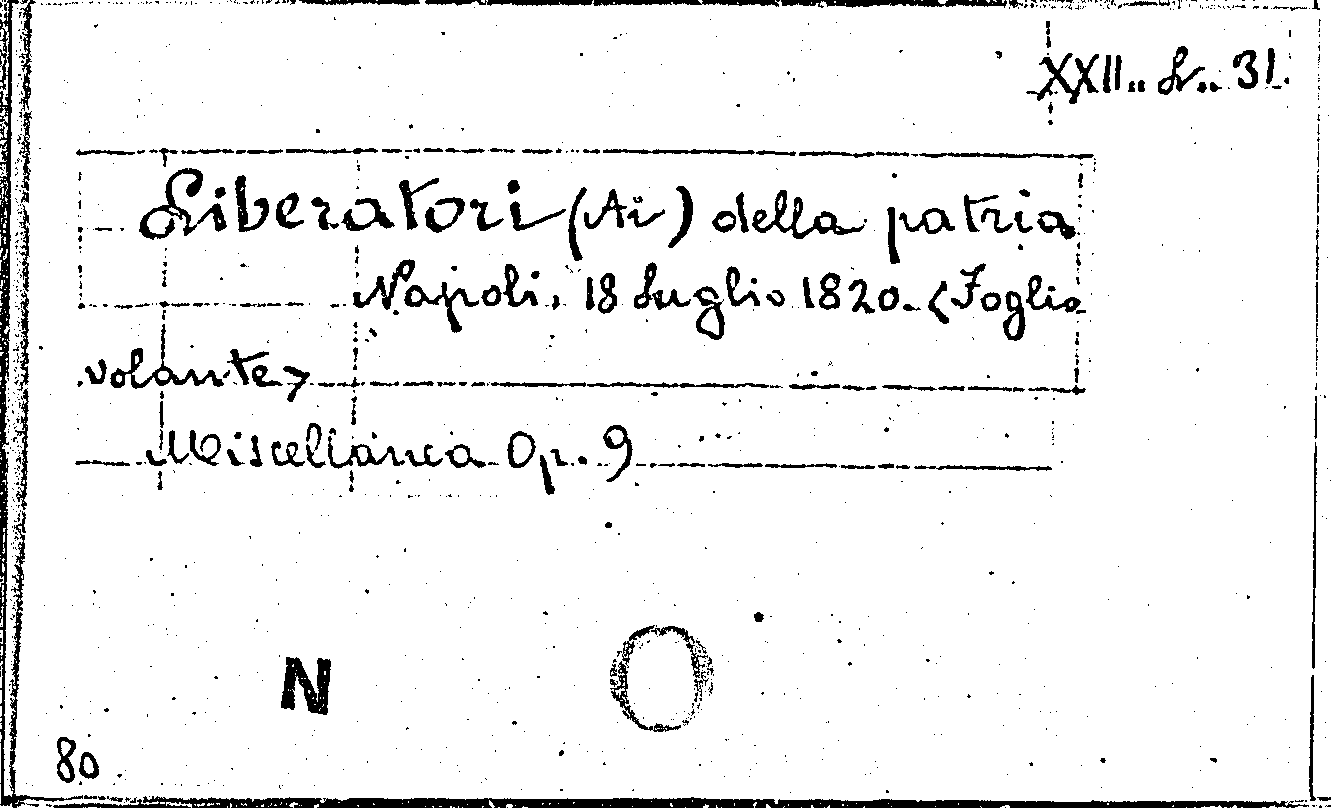 XXII.. L.. 31.
Liberatori (Ai) della patria
Napoli, 18 Luglio 1820. <Foglio
volante>
Miscellanea Op. 9
N
80